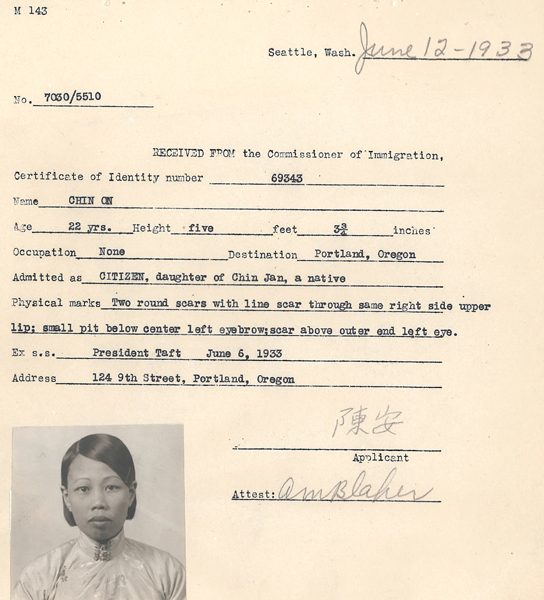 M 143
Seattle, Wash. June 12-1933
No. 7030/5510
RECEIVED FROM the Commissioner of Immigration,
Certificate of Identity number 69343
Name CHIN ON
Age 22 yrs. Height five feet 3¾ inches
Occupation None Destination Portland, Oregon
Admitted as CITIZEN, daughter of Chin Jan, a native
Physical marks Two round scars with line scar through same right side upper
lip; small pit below center left eyebrow;scar above outer end left eye.
Ex s.s. President Taft June 6, 1933
Address 124 9th Street, Portland, Oregon
陳安
Applicant
Attest: AMBlaker